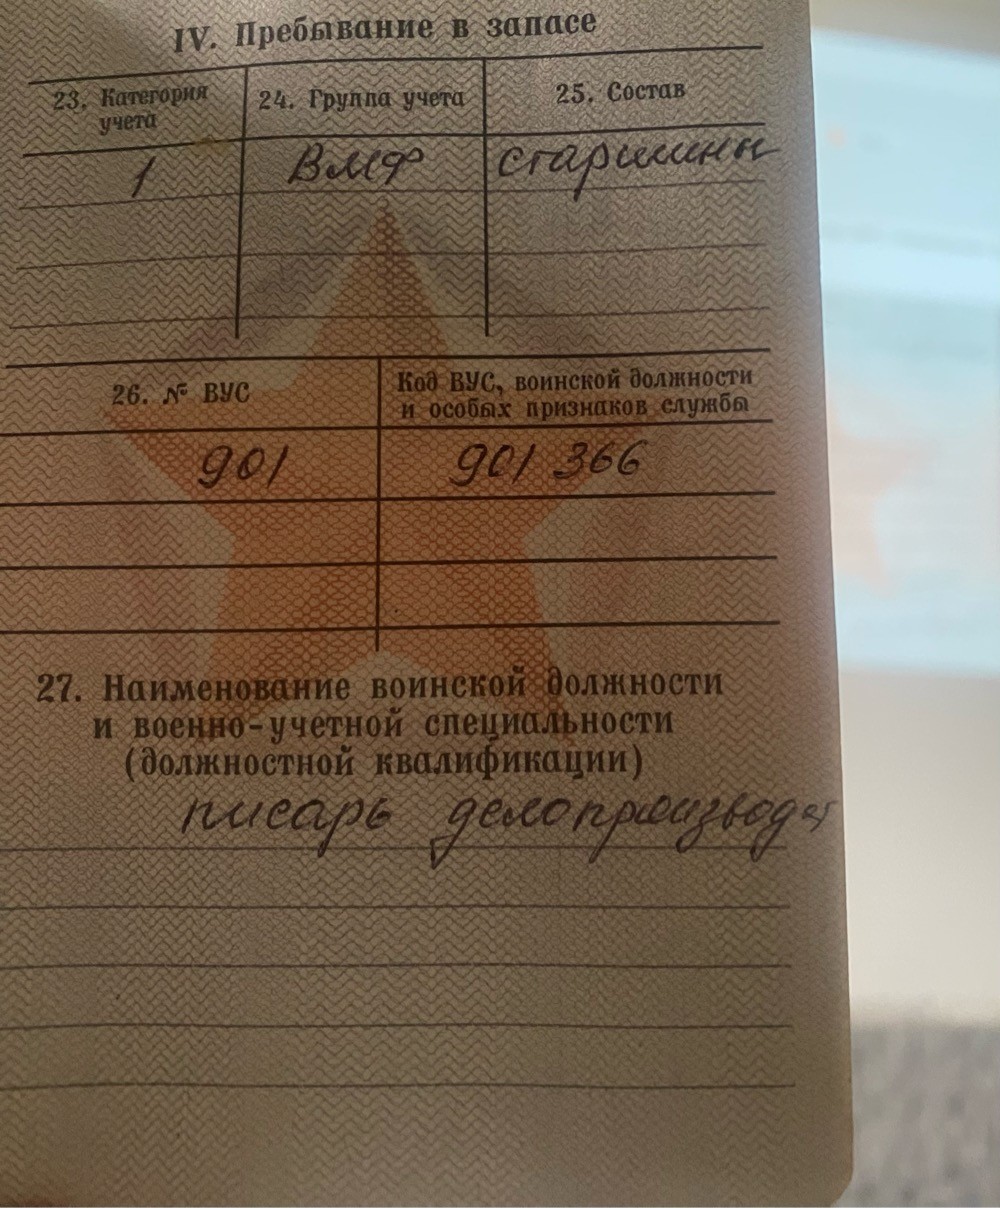 IV. Пребывание в запасе
23. Категория учета
24. Группа учета
25. Состав
1
ВМФ
старшины
26. № ВУС
Код ВУС, воинской должности
и особых признаков службы
901
901 366
27. Наименование воинской должности
и военно-учетной специальности
(должностной квалификации)
писарь делопроизвод